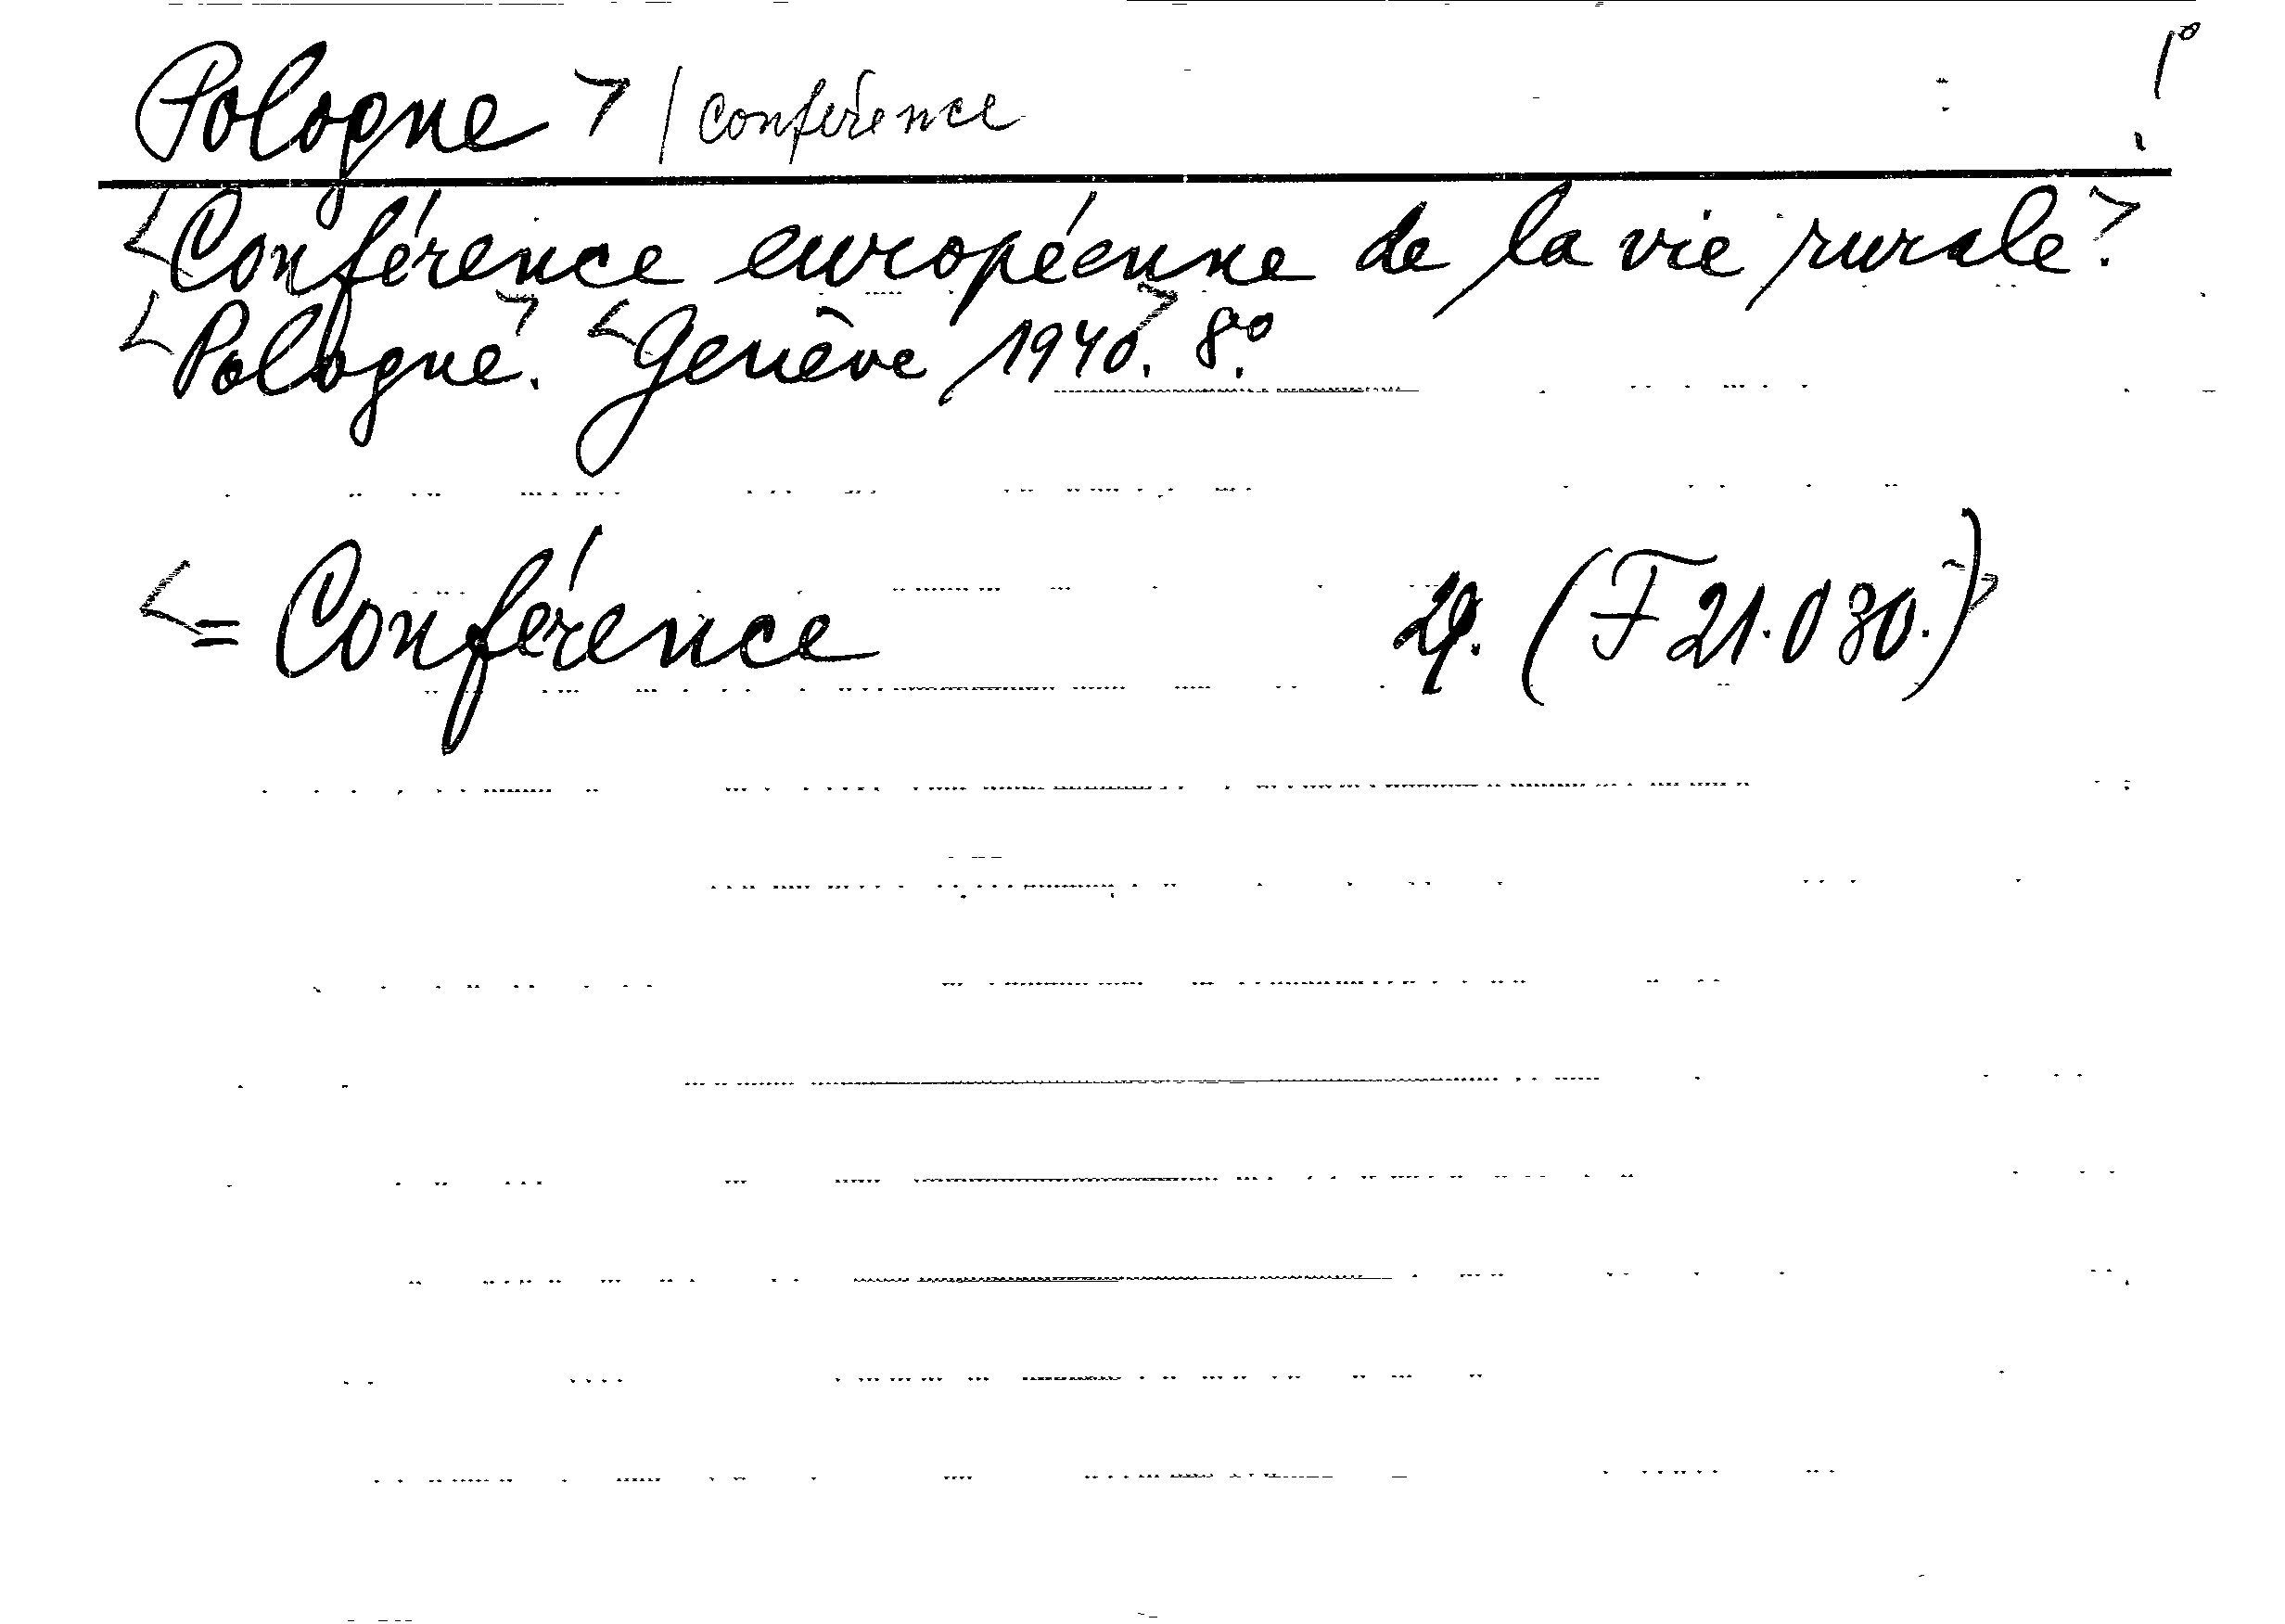 Pologne > / conférence 1°
<Conférence européenne de la vie rurale>.
<Pologne>. <Genève 1940>. 8°.
<= Conférence 29. (F 21.030.)>